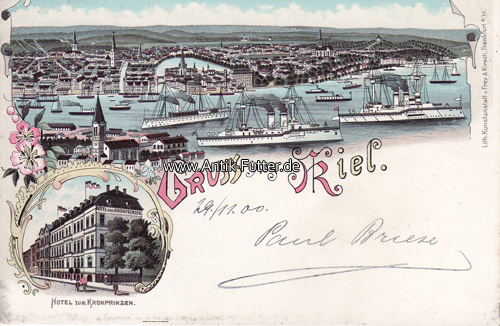 Lith. Kunstanstalt v. Frey & Kirsch, Frankfurt a/M.
www.Antik-Futter.de
Gruss aus Kiel.
29./11.00.
Paul Briese
HOTEL ZUM KRONPRINZEN
HOTEL ZUR KRONPRINZEN.